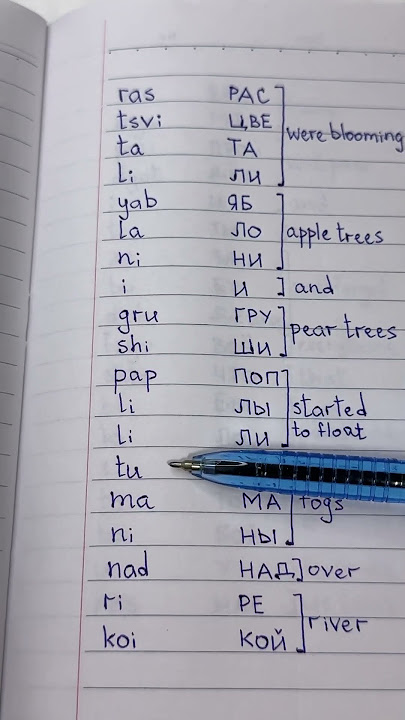 ras РАС
tsvi ЦВЕ were blooming
ta ТА
li ЛИ
yab ЯБ
la ЛО apple trees
ni НИ
i И and
gru ГРУ pear trees
shi ШИ
pap ПОП
li ЛЫ started
li ЛИ to float
tu
ma МА fogs
ni НЫ
nad НАД over
ri РЕ river
koi КОЙ